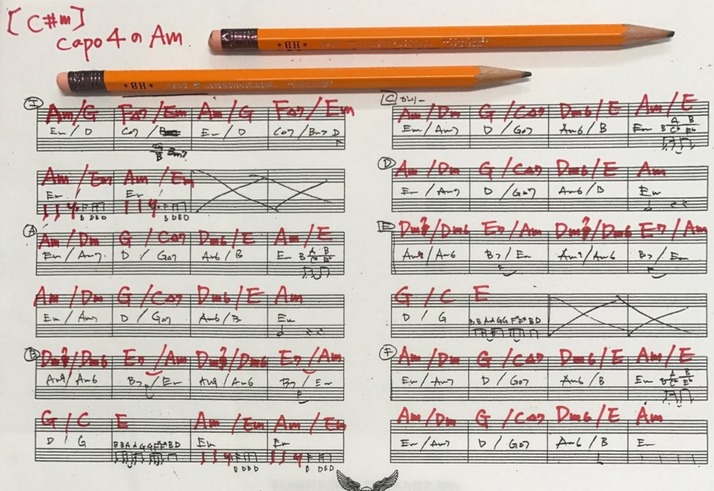 [C#m]
capo 4 の Am
HB
HB
I
Am/G F△7/Em Am/G F△7/Em
Em / D C△7 / Em / D C△7 / Bm7 D
G/B Bm7
Am/Em Am/Em
Em Em
B D B D B D B D
A
Am/Dm G/C△7 Dm6/E Am/E
Em/Am7 D / G△7 Am6/B Em B
Am/Dm G/C△7 Dm6/E Am
Em/Am7 D / G△7 Am6/B Em
B
Dm9/Dm6 E7/Am Dm9/Dm6 E7/Am
Am9/Am6 B7/Em Am9/Am6 B7/Em
G/C E Am/Em Am/Em
D / G Em Em
C
Am/Dm G/C△7 Dm6/E Am/E
Em/Am7 D / G△7 Am6/B Em B
D
Am/Dm G/C△7 Dm6/E Am
Em/Am7 D / G△7 Am6/B Em
E
Dm9/Dm6 E7/Am Dm9/Dm6 E7/Am
Am9/Am6 B7/Em Am9/Am6 B7/Em
G/C E
D / G
F
Am/Dm G/C△7 Dm6/E Am/E
Em/Am7 D / G△7 Am6/B Em B
Am/Dm G/C△7 Dm6/E Am
Em/Am7 D / G△7 Am6/B Em